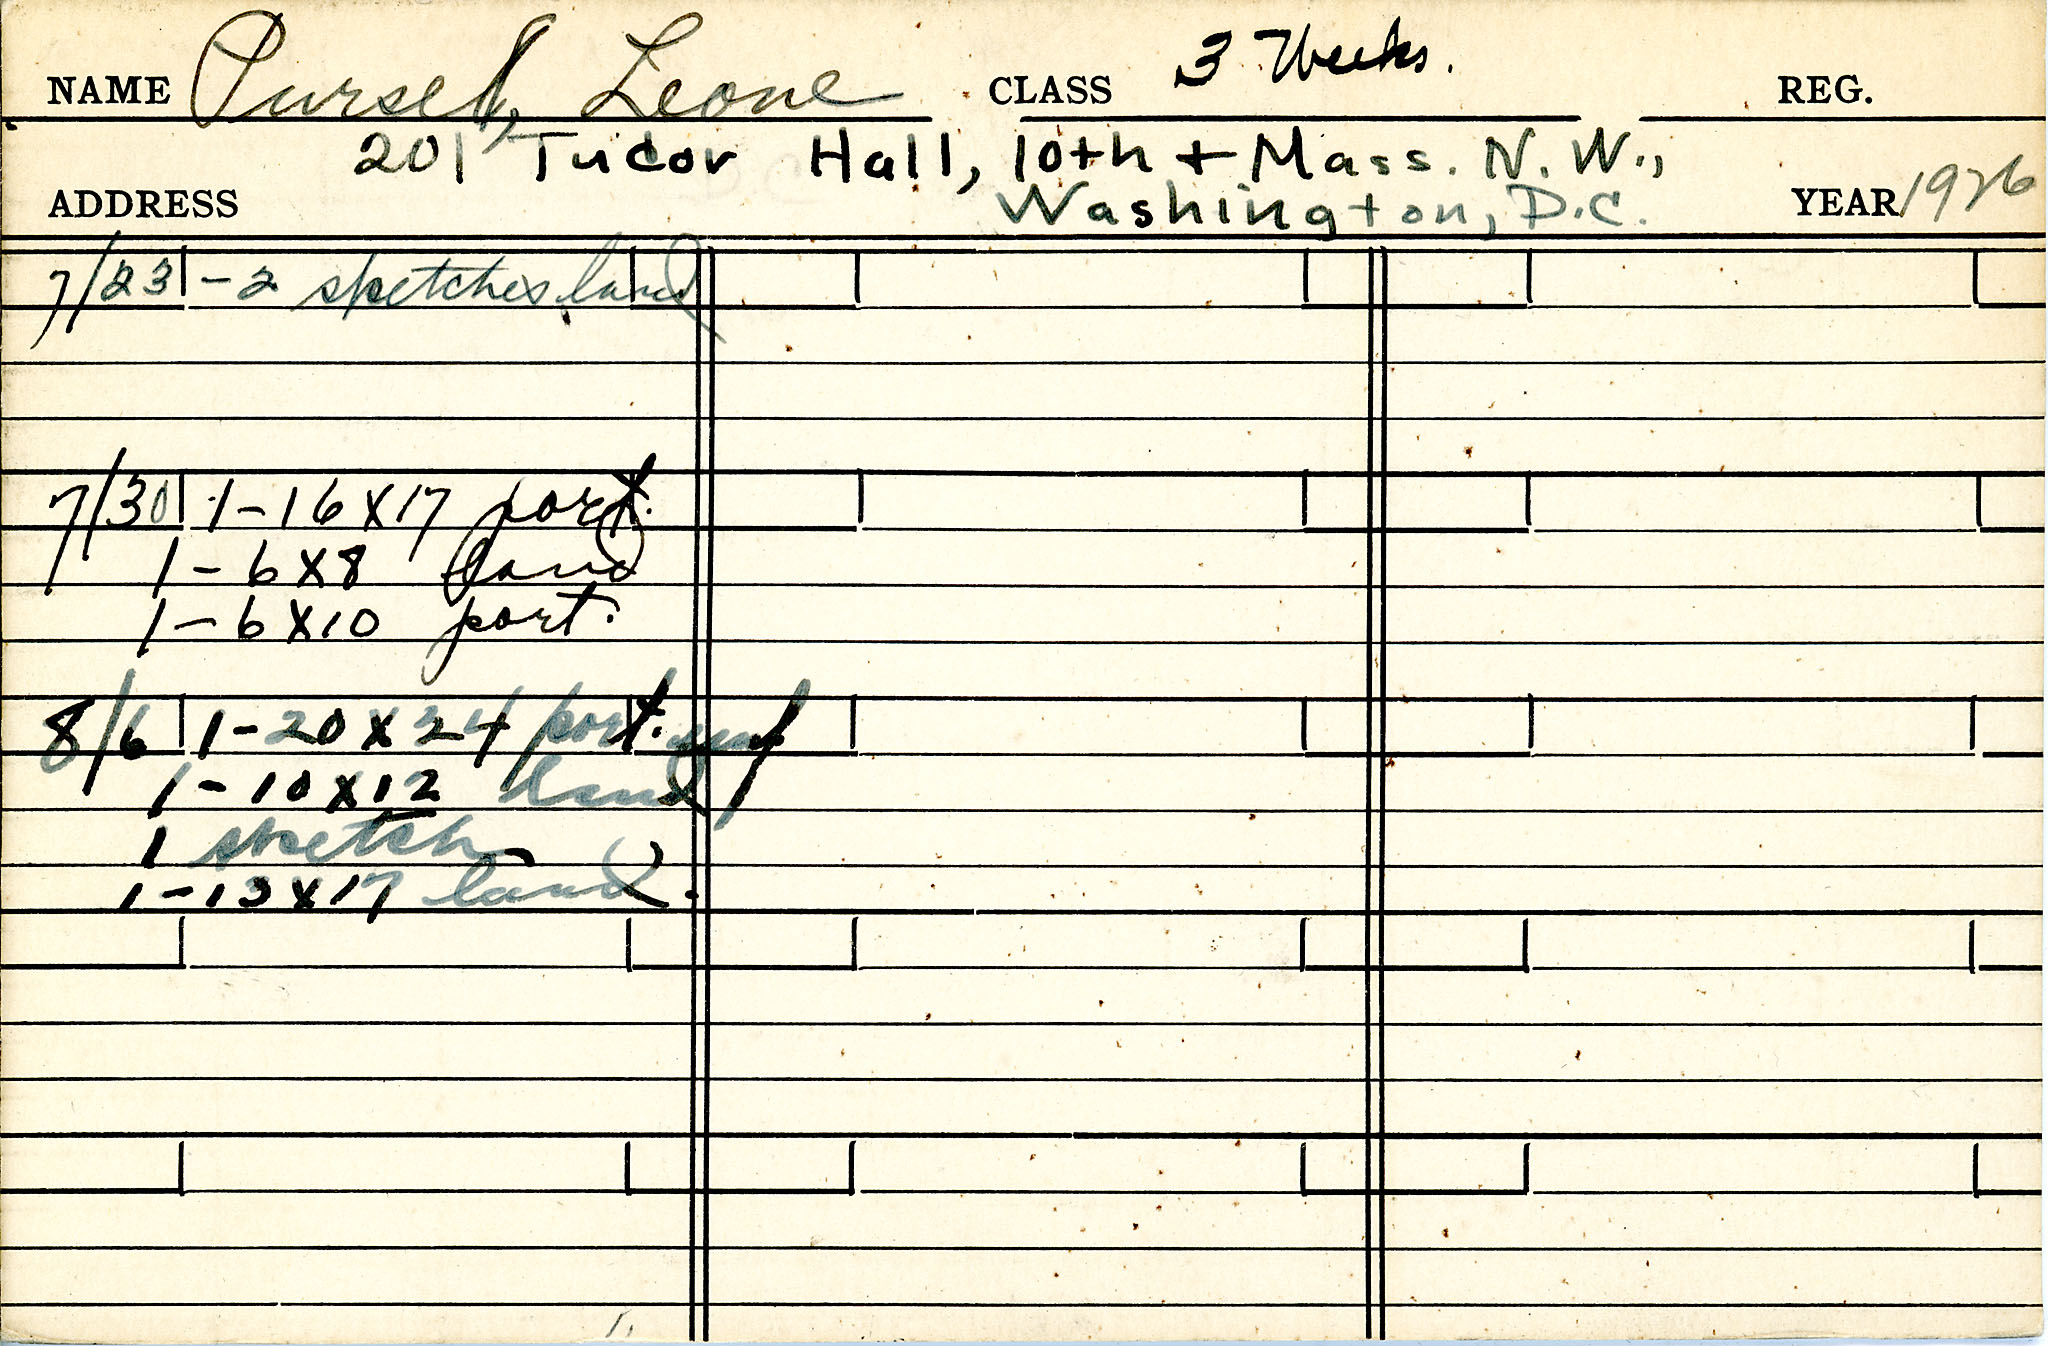 NAME Pursel, Leone CLASS 3 Weeks. REG.
201 Tudor Hall, 10th + Mass. N.W.,
ADDRESS Washington, D.C. YEAR 1926
7/23 - 2 sketches land
7/30 1 - 16 X 17 port.
1 - 6 X 8 land
1 - 6 X 10 port.
8/6 1 - 20 X 24 port.
1 - 10 X 12 land
1 sketch
1 - 13 X 17 land.